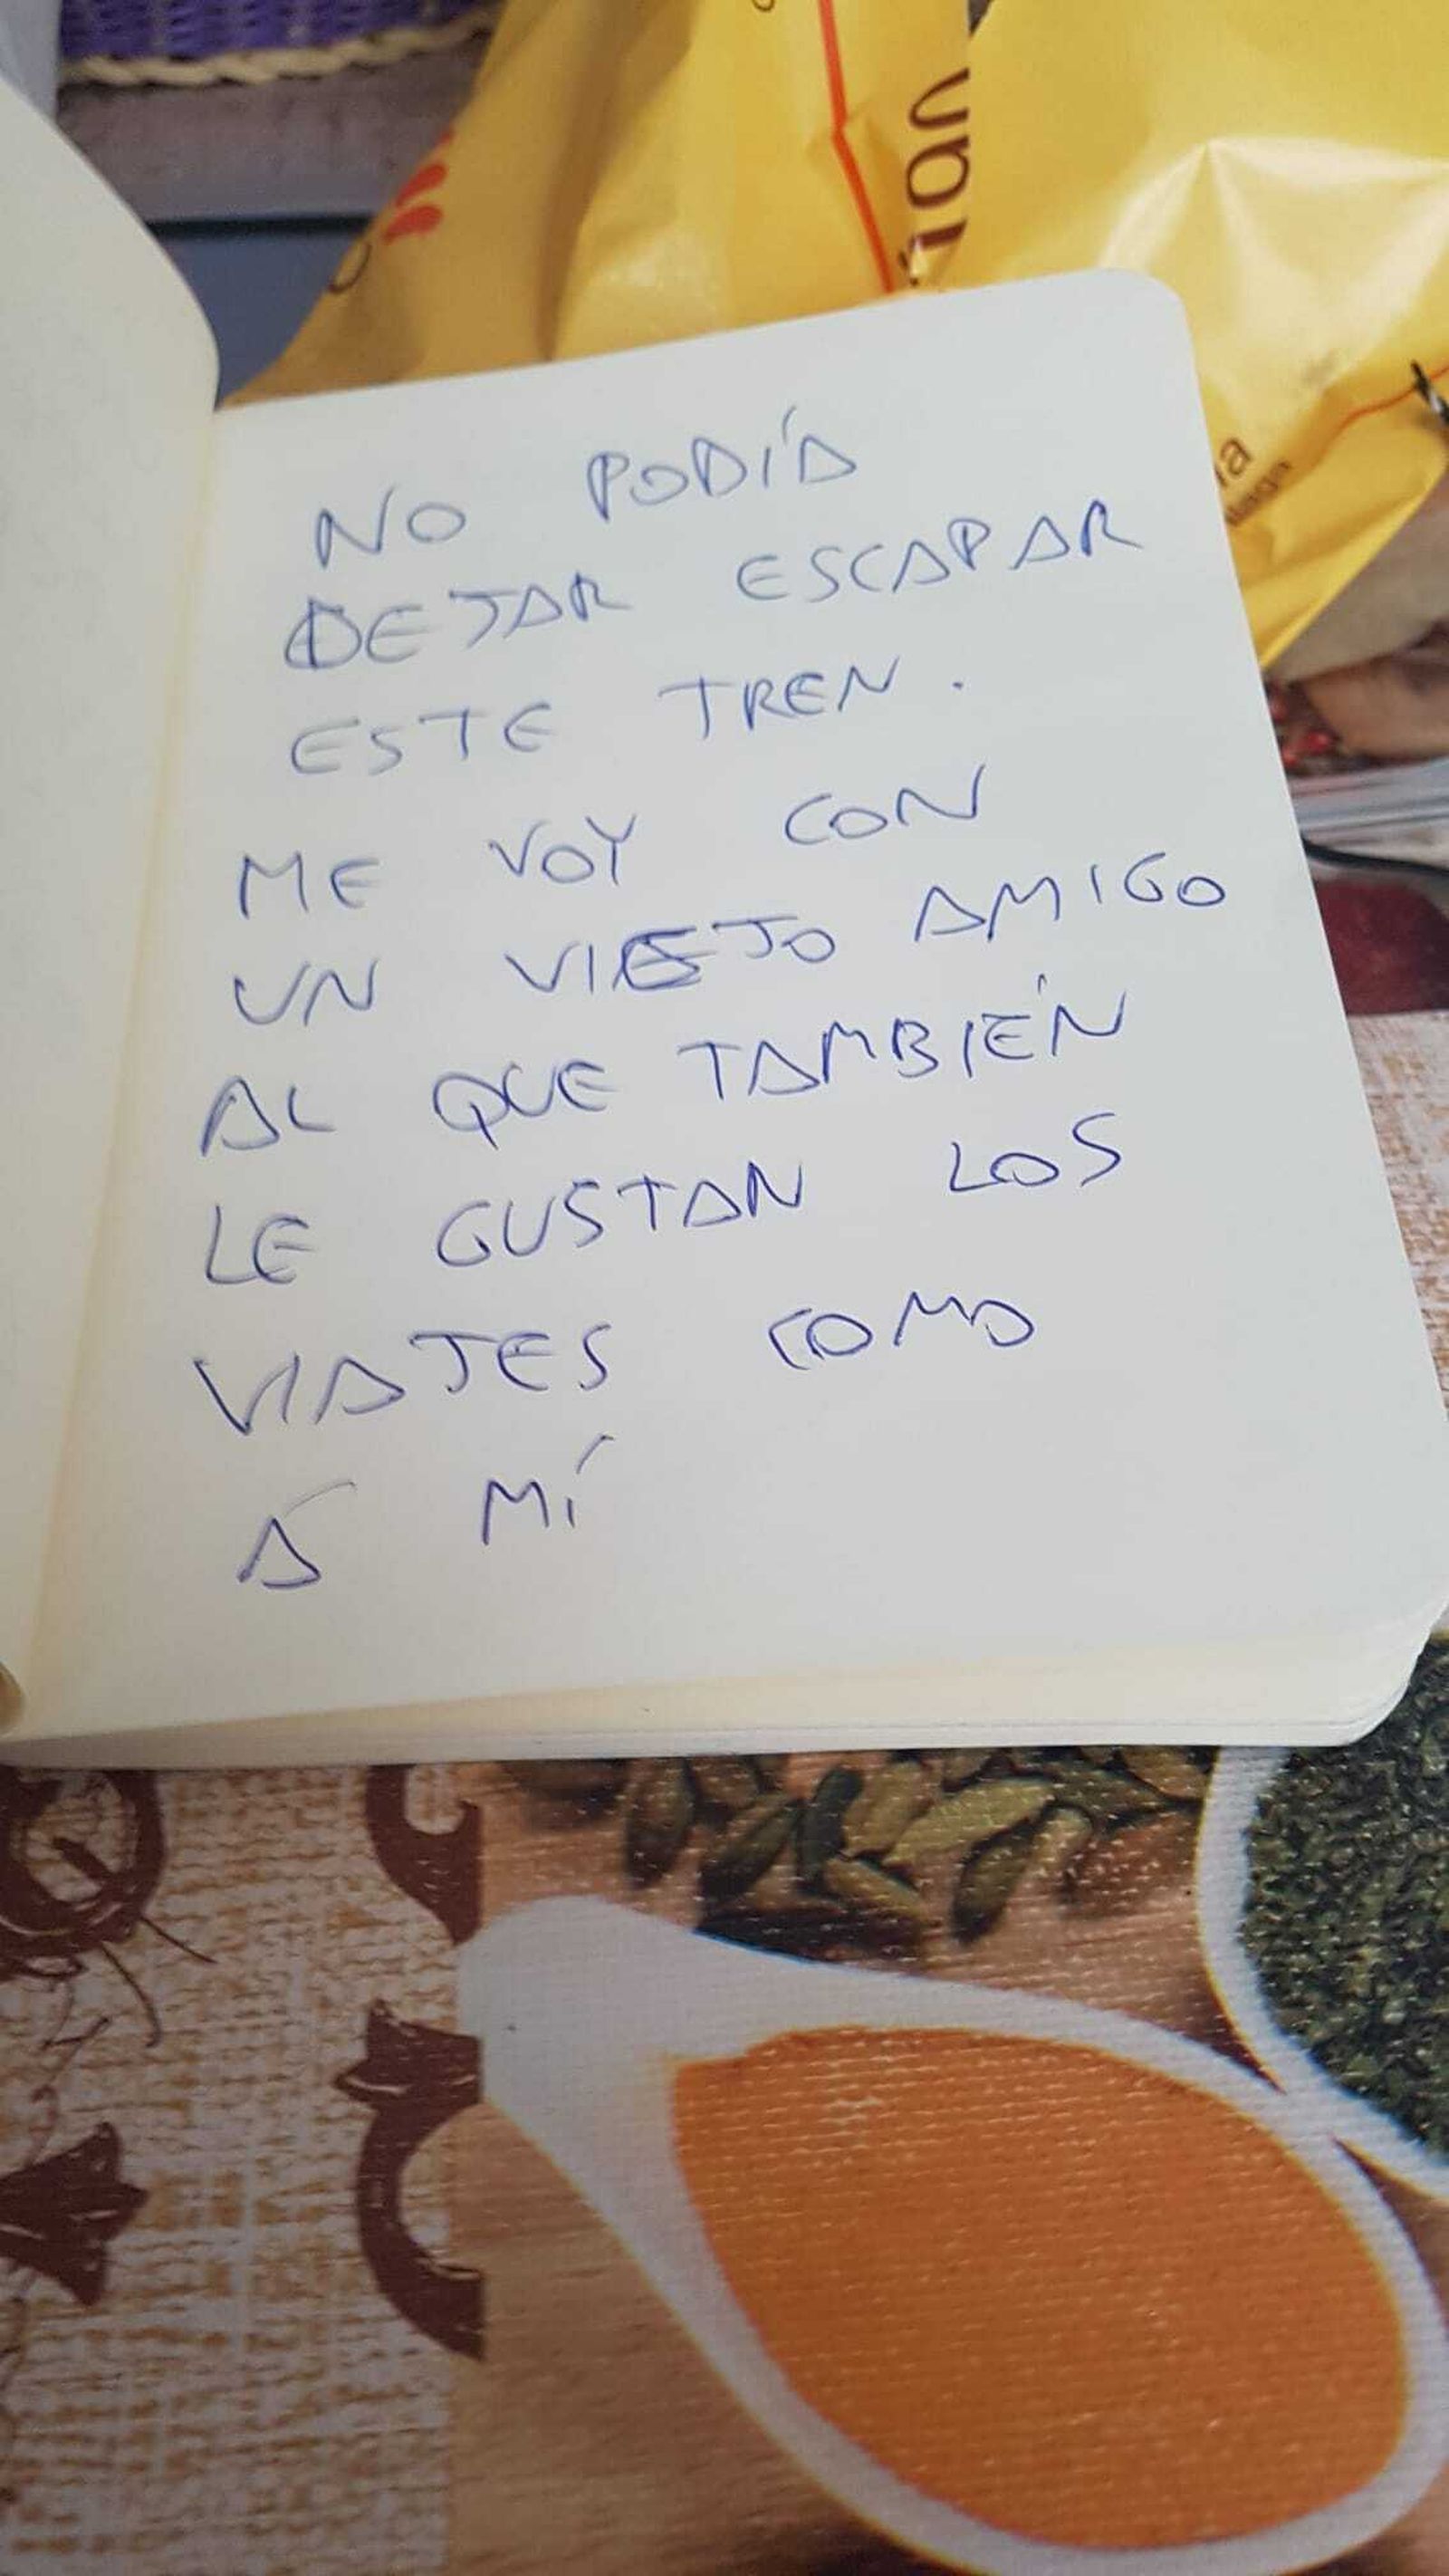 NO PODÍA
DEJAR ESCAPAR
ESTE TREN.
ME VOY CON
UN VIEJO AMIGO
AL QUE TAMBIÉN
LE GUSTAN LOS
VIAJES COMO
Á MÍ